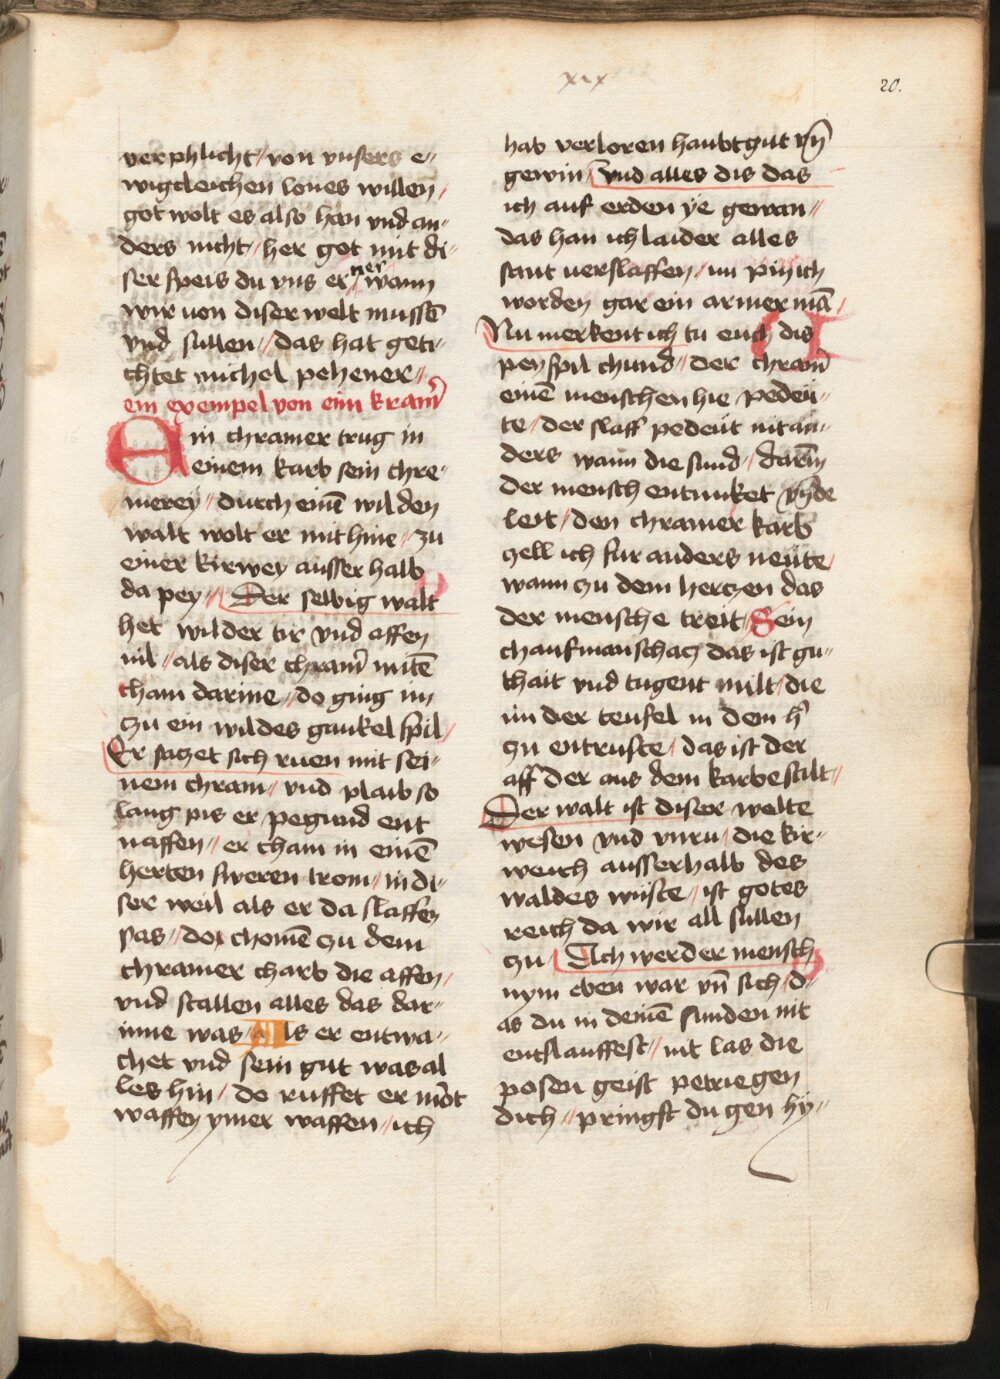 xix
20.
verphlicht // von vnsers e//
wigcleichen lones willen /
got wolt es also han vnd an//
ders nicht // her got mit di//
ser speis du vns er ner wann
wir von diser welt mussē
vnd sullen // das hat geti//
chtet michel pehener //
ein exempel von eim kram̄
Ein chramer trug in
einem karb sein chre//
merey // durch einē wilden
walt wolt er mit hine // zu
einer kirwey ausserhalb
da pey // Der selbig walt
het wilder tir vnd affen
uil // als diser chram̄ mitē
cham darinne // do ging im
zu ein wildes gaukel spil /
Er saczet sich ruen mit sei//
nem chram // vnd plaib so
lang pis er pegund ent
naffen // er cham in einē
herten sweren trom // in di//
ser weil als er da slaffen
sas // do chomē zu dem
chramer charb die affen /
vnd stallen alles das dar//
inne was // Als er entwa//
chet vnd sein gut was al
les hin / do ruffet er mōt
waffen ymer waffen // ich
hab verloren haubtgut vn̄
gewin / vnd alles dis das
ich auf erden ye gewan //
das han ich laider alles
samt uerslaffen / nu pin ich
worden gar ein armer mā /
Nu merkent ich tu euch dis
peyspil chund // der chram̄
einē menschen hie pedeu//
te / der slaff pedeut nit an//
ders wann die sund // darin̄
der mensch entnuket vn̄ de
leit / den chramer karb
zell ich fur anders neute /
wann zu dem herczen das
der mensche treit // Sein
chaufmanschacz das ist gu//
thait vnd tugent milt // die
im der teufel in dem h̄
zu entruste / das ist der
aff der aus dem karbe stilt //
Der walt ist diser welte
wesen vnd vnru / die kir//
weich ausserhalb des
waldes wuste / ist gotes
reich da wir all sullen
zu / Ach werder mensch
nym eben war vn̄ sich / d//
as du in deinē sunden nit
entslauffest // nit las die
posen geist petriegen
dich // pringst du gen hy//